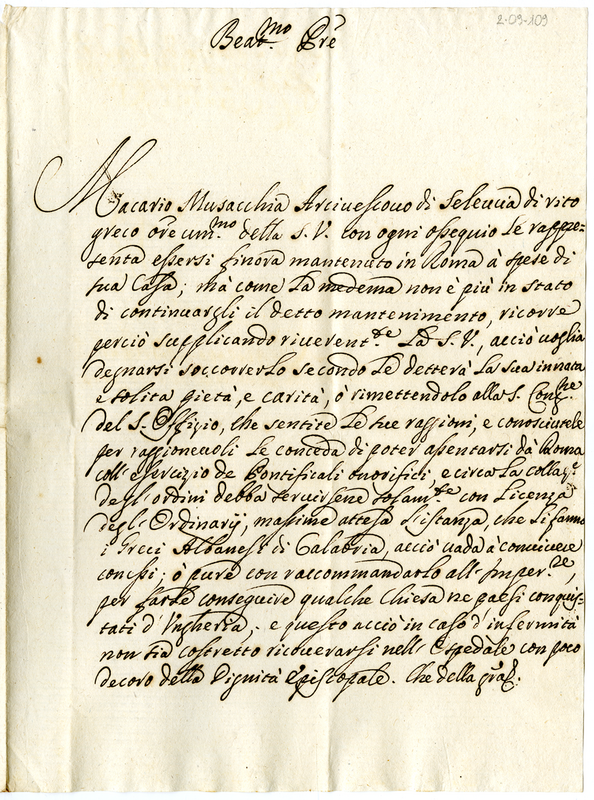 2-09-109
Beat.mo Prẽ
Macario Musacchia Arcivescovo di Seleucia di rito
greco ore um.mo della S. V. con ogni ossequio le rappre=
senta essersi finora mantenuto in Roma à spese di
sua Casa; mà come la medema non è più in stato
di continuargli il detto mantenimento, ricorre
perciò supplicando riverent.te La S. V., acciò voglia
degnarsi soccorrerlo secondo le detterà la sua innata
e solita pietà, e carità, ò rimettendolo alla S. Cong.ne
del S. Offizio, che sentite le sue raggioni, e conosciutele
per raggionevoli le conceda di poter assentarsi dà Roma
coll' esercizio de Pontificali onorifici, e circa la collaz.e
degl' ordini debba servirsene solam.te con licenza
degl' Ordinarij, massime attesa l'istanza, che li fanno
i Greci Albanesi di Calabria, acciò vada à convivere
con essi; ò pure con raccommandarlo all' Imper.re,
per farle conseguire qualche Chiesa ne paesi conquis=
tati d' Ungheria, e questo acciò in caso d' infermità
non sia costretto ricoverarsi nell' Ospedale con poco
decoro della Dignità Episcopale. Che della gra͂.